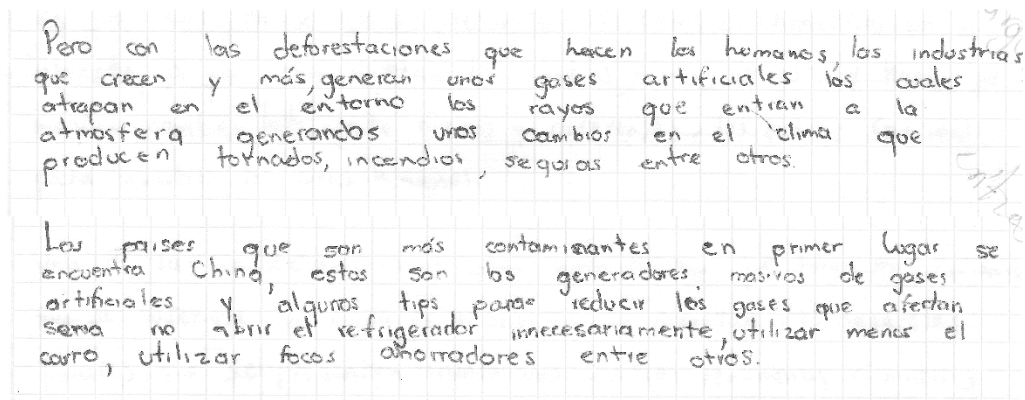 Pero con las deforestaciones que hacen los humanos, las industrias
que crecen y más, generan unos gases artificiales los cuales
atrapan en el entorno los rayos que entran a la
atmosfera generandos unos cambios en el clima que
producen tornados, incendios, sequias entre otros.
Los paises que son más contaminantes en primer lugar se
encuentra China, estos son los generadores masivos de gases
artificiales y algunos tips para reducir los gases que afectan
seria no abrir el refrigerador innecesariamente, utilizar menos el
carro, utilizar focos ahorradores entre otros.